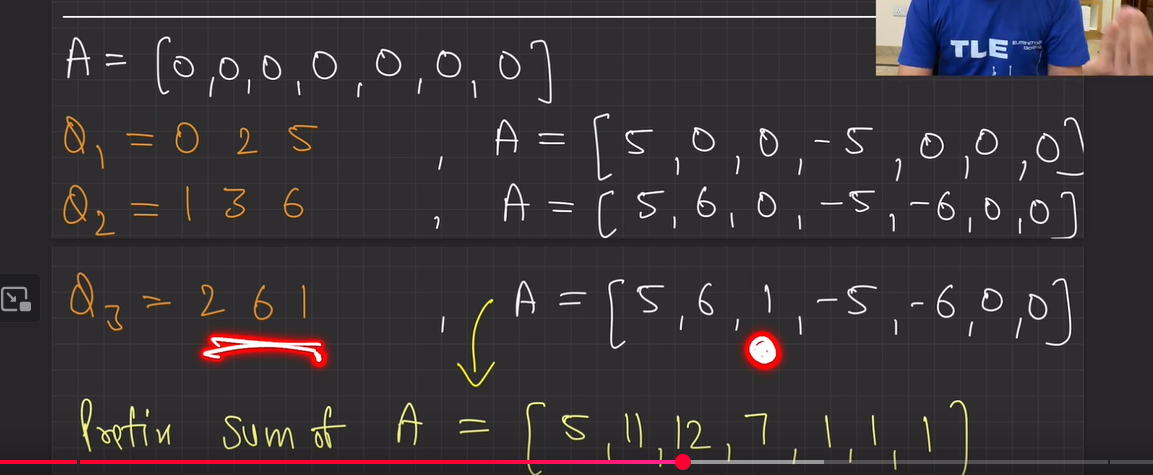 TLE
A = [0, 0, 0, 0, 0, 0, 0]
Q1 = 0 2 5 , A = [5, 0, 0, -5, 0, 0, 0]
Q2 = 1 3 6 , A = [5, 6, 0, -5, -6, 0, 0]
Q3 = 2 6 1 , A = [5, 6, 1, -5, -6, 0, 0]
Prefix sum of A = [5, 11, 12, 7, 1, 1, 1]